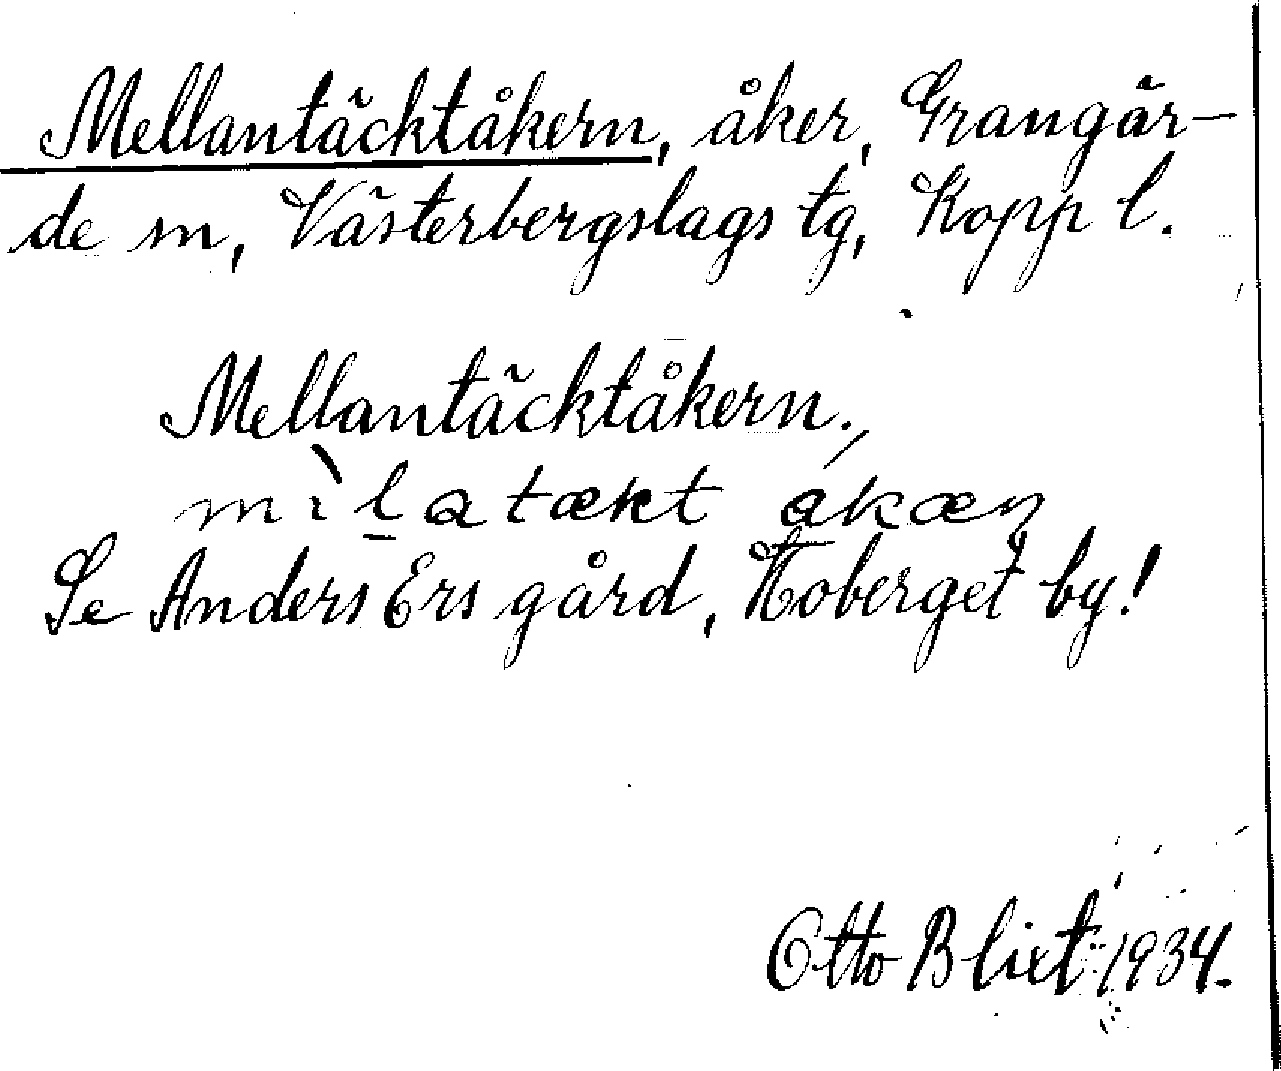 Mellantäcktåkern, åker, Grangär-
de sn, Västerbergslags tg, Kopp l.
Mellantäcktåkern.,
mìlatækt åkæn
Se Anders Ers gård, Noberget by!
Otto Blixt 1934.